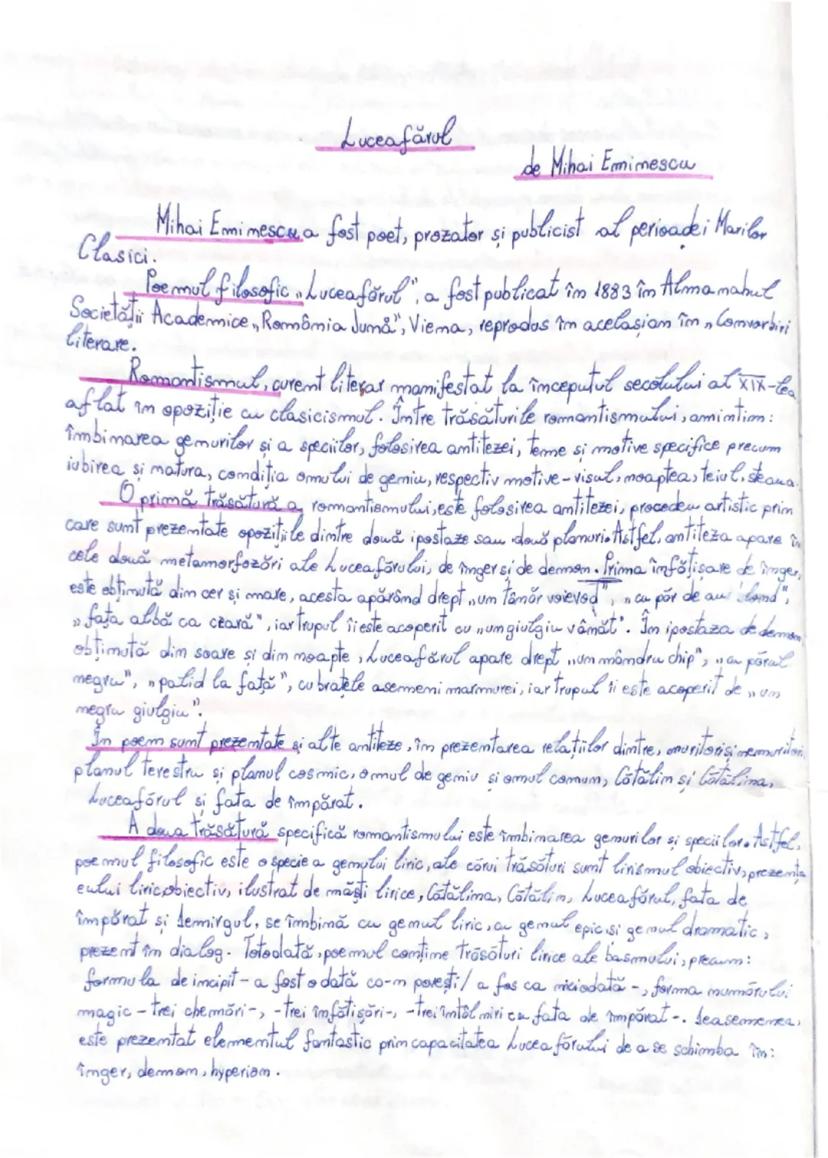 Luceafărul
de Mihai Eminescu
Mihai Eminescu, a fost poet, prozator și publicist al perioadei Marilor
Clasici.
Poemul filosofic „Luceafărul”, a fost publicat în 1883 în Almanahul
Societății Academice „România Jună”, Viena, reprodus în același an în „Convorbiri
literare.
Romantismul, curent literar manifestat la începutul secolului al XIX-lea
aflat în opoziție cu clasicismul. Între trăsăturile romantismului, amintim:
îmbinarea genurilor și a speciilor, folosirea antitezei, teme și motive specifice precum
iubirea și natura, condiția omului de geniu, respectiv motive - visul, noaptea, teiul, steaua.
O primă trăsătură a romantismului, este folosirea antitezei, procedeu artistic prin
care sunt prezentate opozițiile dintre două ipostaze sau două planuri. Astfel, antiteza apare în
cele două metamorfozări ale Luceafărului, de înger și de demon. Prima înfățișare de înger,
este obținută din cer și mare, acesta apărând drept „un tânăr voievod”, „cu păr de aur blond”,
„fața albă ca ceară”, iar trupul îi este acoperit cu „un giulgiu vânăt”. În ipostaza de demon,
obținută din soare și din noapte, Luceafărul apare drept „un mândru chip”, „cu părul
negru”, „palid la față”, cu brațele asemeni marmurei, iar trupul îi este acoperit de „un
negru giulgiu”.
În poem sunt prezentate și alte antiteze, în prezentarea relațiilor dintre, muritori și nemuritori,
planul terestru și planul cosmic, omul de geniu și omul comun, Cătălin și Cătălina,
Luceafărul și fata de împărat.
A doua trăsătură specifică romantismului este îmbinarea genurilor și speciilor. Astfel,
poemul filosofic este o specie a genului liric, ale cărui trăsături sunt lirismul obiectiv, prezența
eului liric obiectiv, ilustrat de măști lirice, Cătălina, Cătălin, Luceafărul, fata de
împărat și Demirgul, se îmbină cu genul liric, cu genul epic și genul dramatic,
prezent în dialog. Totodată, poemul conține trăsături lirice ale basmului, precum:
formula de incipit - a fost odată ca-n povești / a fos ca niciodată -, forma numărului
magic - trei chemări -, - trei înfățișări -, - trei întâlniri cu fata de împărat -. Deasemenea,
este prezentat elementul fantastic prin capacitatea Luceafărului de a se schimba în:
înger, demon, hyperion.